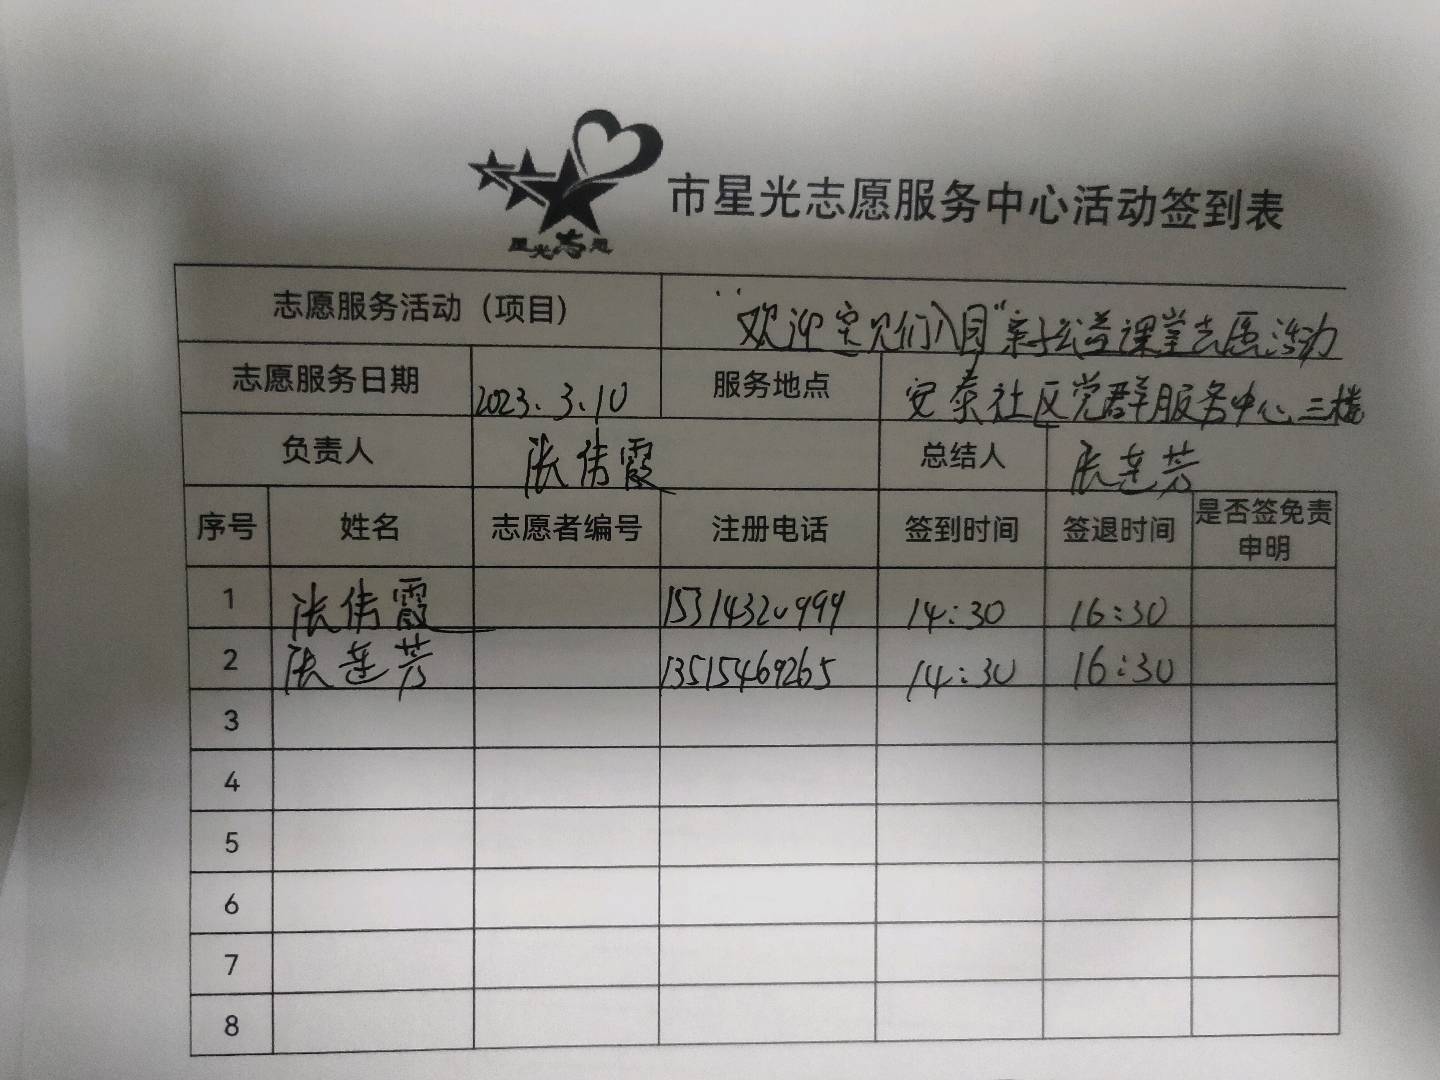 星光志愿
市星光志愿服务中心活动签到表
志愿服务活动（项目） “欢迎宝贝们入园”亲子公益课堂志愿活动
志愿服务日期 2023.3.10 服务地点 安泰社区党群服务中心三楼
负责人 张倩霞 总结人 张莲芳
序号 姓名 志愿者编号 注册电话 签到时间 签退时间 是否签免责申明
1 张倩霞 15314320999 14:30 16:30
2 张莲芳 13515469265 14:30 16:30
3
4
5
6
7
8